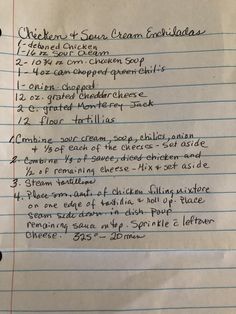 Chicken & Sour Cream Enchiladas
1 - deboned Chicken
1 - 16 oz Sour Cream
2 - 10 3/4 oz crm. chicken Soup
1 - 4oz can chopped green chili's
1 - onion - chopped
12 oz. grated cheddar cheese
2 c. grated Monterey Jack
12 flour tortillias
1. Combine sour cream, soup, chilies, onion
& 1/3 of each of the cheeses - Set aside
2 - Combine 1/3 of sauce, diced chicken and
1/2 of remaining cheese - Mix & set aside
3. Steam tortillias
4. Place sm. amt. of chicken filling mixture
on one edge of tortillia & roll up. Place
seam side down in dish. Pour
remaining sauce on top. Sprinkle c leftover
cheese. 325° - 20 min